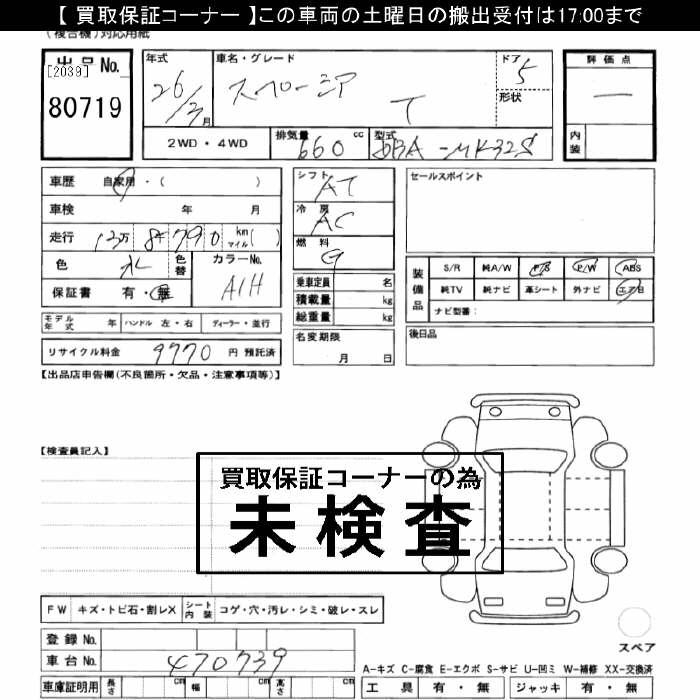 【 買取保証コーナー 】この車両の土曜日の搬出受付は17:00まで
(複合機)対応用紙
出品No.
[2039]
80719
年式
26/3月
車名・グレード
スペーシア T
ドア
5
形状
評価点
—
内装
2WD・4WD
排気量 660 cc
型式 DBA-MK32S
車歴 自家用・( )
車検 年 月
走行 13万 8千790 km マイル ( )
色 水 色替
カラーNo. A1H
保証書 有・無
シフト AT
冷房 AC
燃料 G
乗車定員 名
積載量 kg
総重量 kg
名変期限
月 日
セールスポイント
装備品
S/R 純A/W P/S P/W ABS
純TV 純ナビ 革シート 外ナビ エアB
ナビ型番:
後日品
モデル年式 年 ハンドル 左・右 ディーラー・並行
リサイクル料金 9770 円 預託済
【出品店申告欄(不良箇所・欠品・注意事項等)】
【検査員記入】
買取保証コーナーの為
未検査
FW キズ・トビ石・割レX シート内装 コゲ・穴・汚レ・シミ・破レ・スレ
登録 No.
車台 No. 470739
車庫証明用 長さ cm 幅 cm 高さ cm
スペア
A-キズ C-腐食 E-エクボ S-サビ U-凹ミ W-補修 XX-交換済
工具 有・無 ジャッキ 有・無